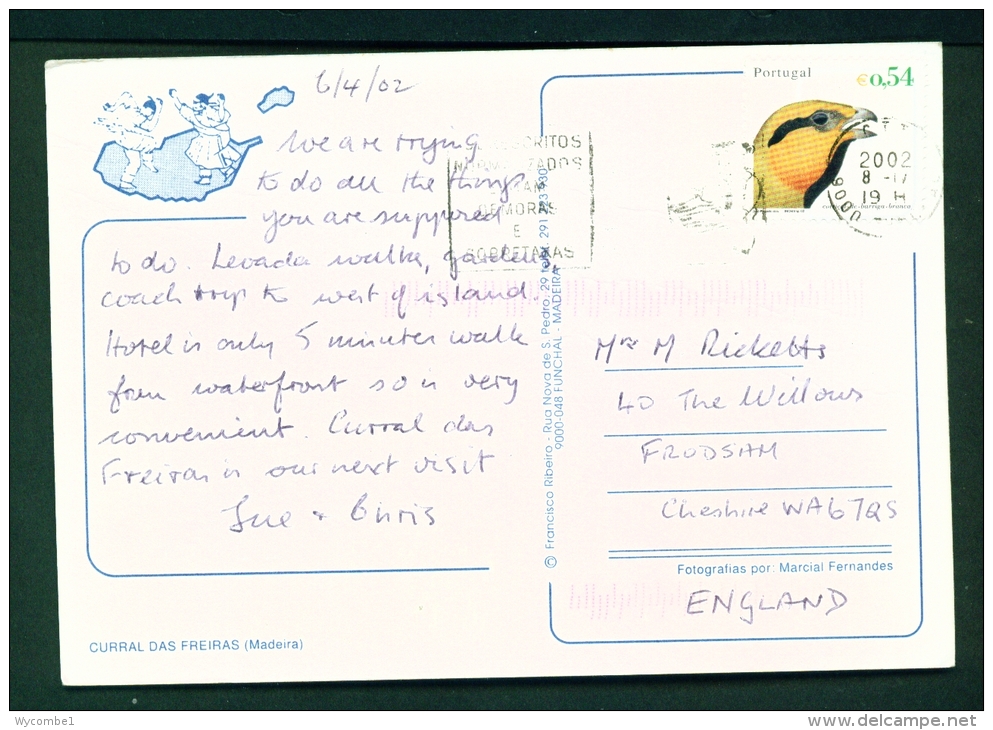 6/4/02
We are trying
to do all the things
you are supposed
to do. Levada walks, gardens,
coach trip to west of island.
Hotel is only 5 minutes walk
from waterfront so is very
convenient. Curral das
Freiras is our next visit
Sue + Chris
CURRAL DAS FREIRAS (Madeira)
DEMORAS
E
SOBRETAXAS
© Francisco Ribeiro - Rua Nova de S. Pedro, 29
9000-048 FUNCHAL - MADEIRA
Portugal
€0,54
2002
8 -17
19 H
9000
Mrs M Ricketts
40 The Willows
FRODSHAM
Cheshire WA6 7QS
Fotografias por: Marcial Fernandes
ENGLAND
Wycombe1
www.delcampe.net